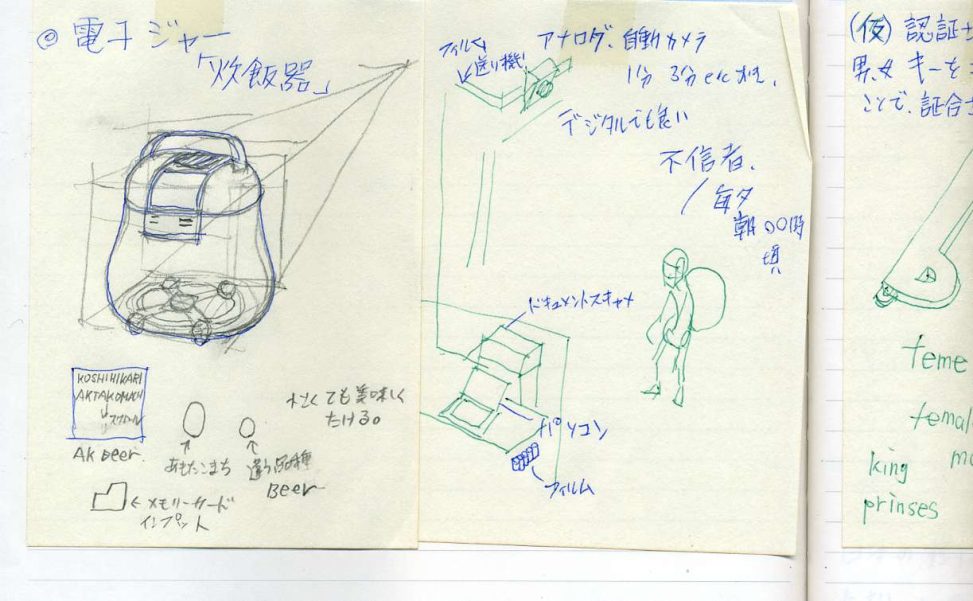 ◎ 電子ジャー
「炊飯器」
KOSHIHIKARI
AKITAKOMACHI
スクロール
AK Beer.
あきたこまち
違う品種
Beer
← メモリーカード
インプット
たける。
フィルム
送り機
アナログ、自動カメラ
1分 3分 etc
デジタルでも良い
不信者、
毎夕
朝〇〇時
頃
ドキュメントスキャナ
パソコン
フィルム
(仮) 認証
男女 キーを
ことで、証合
teme
femal
king
prinses